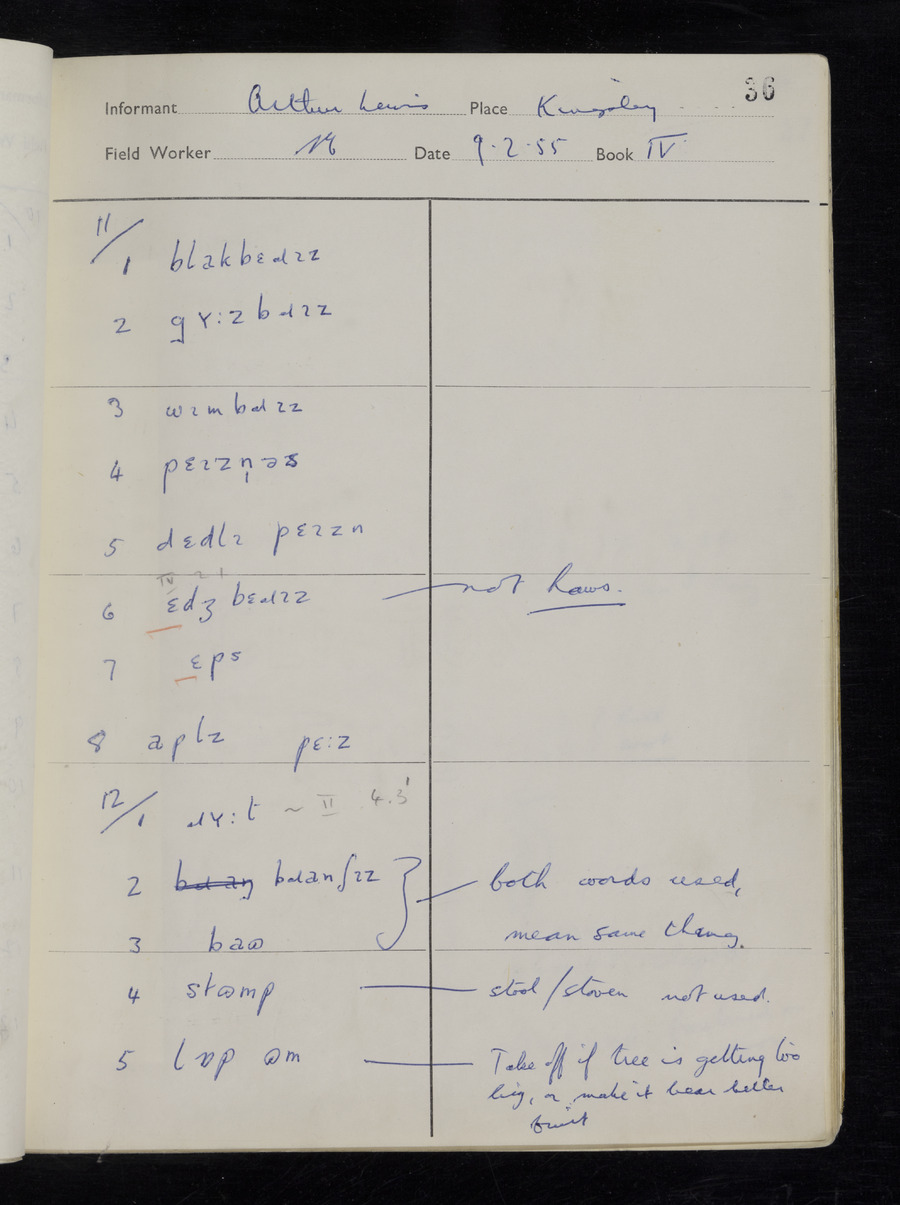 36
Informant Arthur Lewis Place Kingsley
Field Worker Date 9.2.55 Book IV
11/
1 blakbɛɹɪz
2 gʏ:zbɹɪz
3 wɪmbɹɪz
4 pɛɪzn̩əz
5 dɛdlɪ pɛɪzn
6 ɛdʒbɛɹɪz not haws.
7 ɛps
8 aplz pɛ:z
12/
1 ɹʏ:t ~ II 4.3
2 bɹanʃɪz both words used,
3 baω mean same thing.
4 stωmp stool/stoven not used.
5 lɒp ωm Take off if tree is getting too
big, or make it bear better
fruit